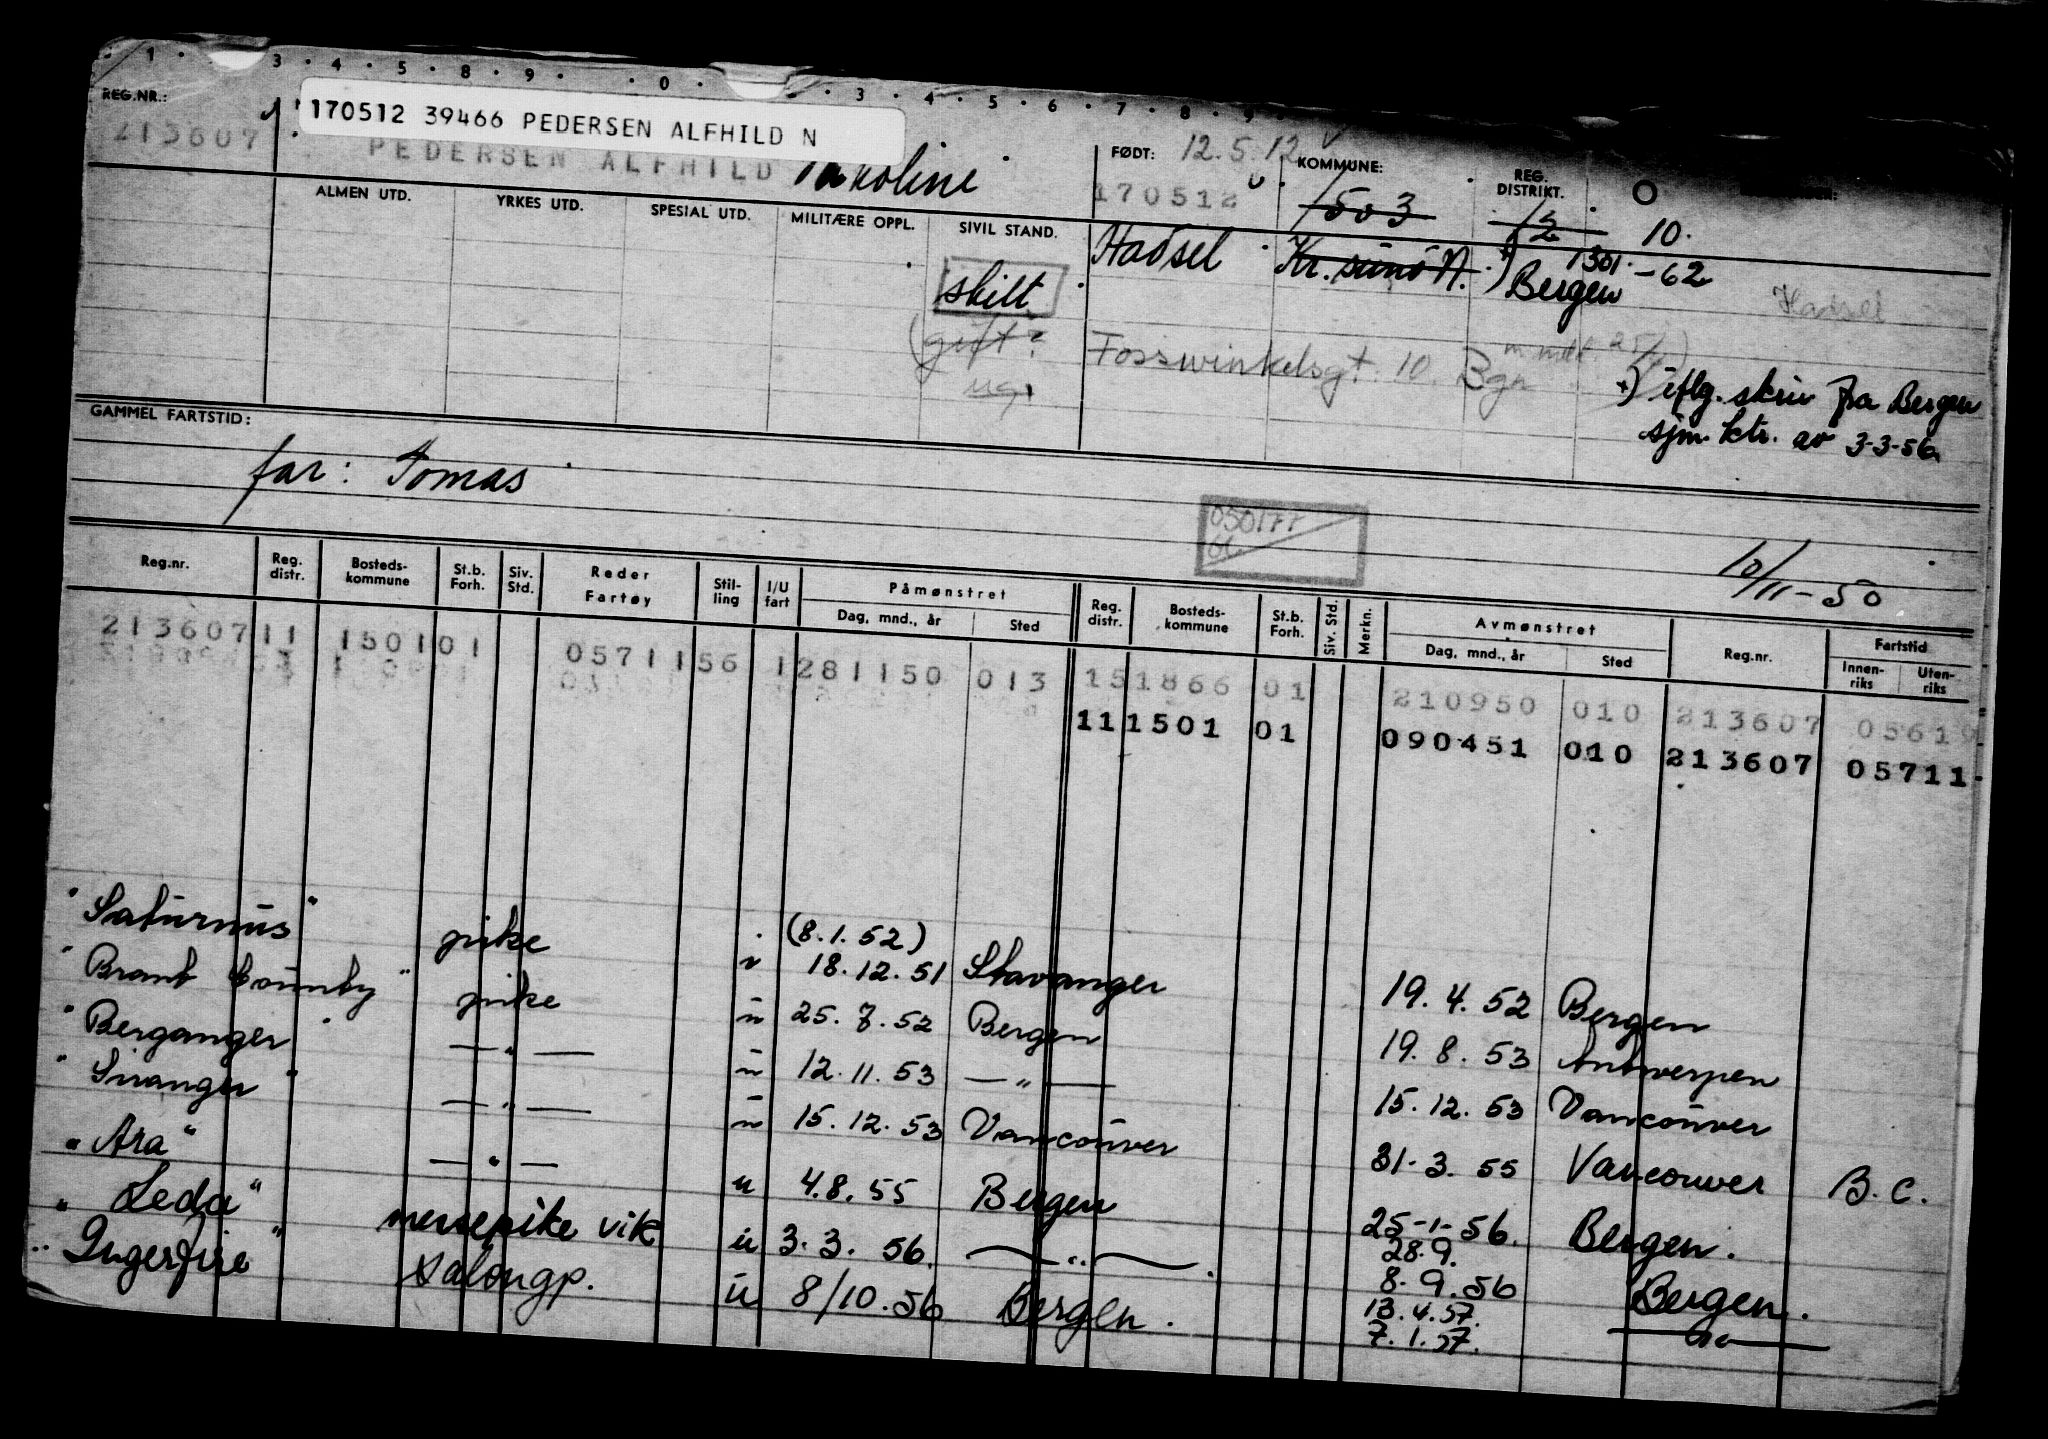 1 · · 3 · 4 · 5 · 8 · 9 · · 0 · · 3 · 4 · 5 · 6 · 7 · 8 · 9
REG.NR.:
170512 39466 PEDERSEN ALFHILD N
213607
PEDERSEN ALFHILD
FØDT: 12.5.12
170512
KOMMUNE:
1503
REG. DISTRIKT.
12
10.
ALMEN UTD.
YRKES UTD.
SPESIAL UTD.
MILITÆRE OPPL.
SIVIL STAND.
Hadsel
Kr.sund N.
1301 -62
Bergen
Hadsel
skilt
(gift?
ug.
Fosswinkelsgt. 10 Bgn
+) iflg. skriv fra Bergen
sjm. ktr. av 3-3-56
GAMMEL FARTSTID:
far: Tomas
050177
10/11-50
Reg.nr. Reg. distr. Bosteds-kommune St.b. Forh. Siv. Std. Reder Fartøy Stil-ling I/U fart Påmønstret Dag, mnd., år Sted Reg. distr. Bosteds-kommune St.b. Forh. Siv. Std. Merkn. Avmønstret Dag, mnd., år Sted Reg.nr. Fartstid Innen-riks Uten-riks
213607 11 1501 01 05711 56 1 281150 013 15 1866 01 210950 010 213607 05619
11 1501 01 090451 010 213607 05711
"Saturnus" pike (8.1.52)
"Brant County" pike u 18.12.51 Stavanger 19.4.52 Bergen
"Berganger" — " — u 25.7.52 Bergen 19.8.53 Antwerpen
"Siranger" — " — u 12.11.53 — " — 15.12.53 Vancouver
u 15.12.53 Vancouver 31.3.55 Vancouver B.C.
"Ara" — " — u 4.8.55 Bergen 25-1-56. Bergen.
"Leda" messepike vik u 3.3.56. — " — 28.9.
8.9.56 Bergen.
"Ingerfire" Salongp. u 8/10.56 Bergen. 13.4.57.
7.1.57.